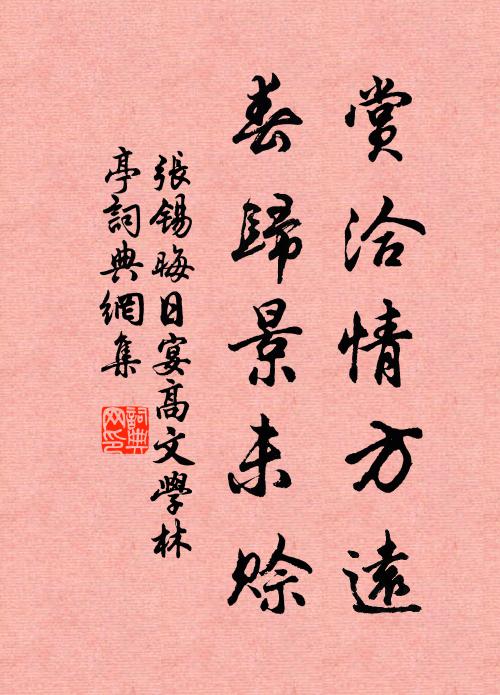 賞洽情方遠
春歸景未賒
張錫晦日宴高文學林
亭詞典網集
詞典
网印